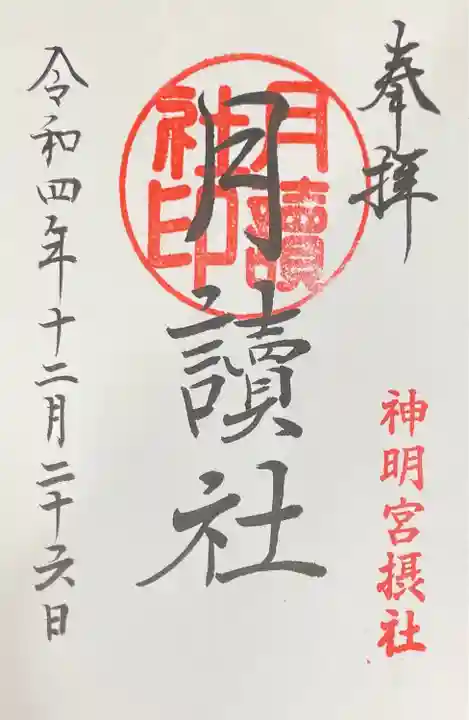 奉拝
神明宮摂社
月讀社
月讀社印
令和四年十二月二十六日